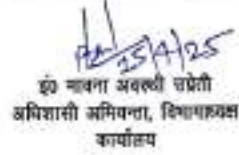 25/4/25
इं० भावना अवस्थी उप्रेती
अधिशासी अभियन्ता, विभागाध्यक्ष
कार्यालय